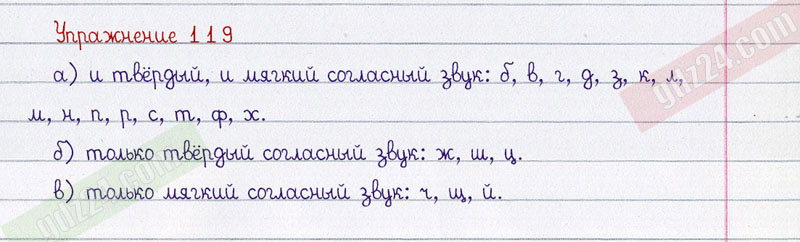 Упражнение 119
а) и твёрдый, и мягкий согласный звук: б, в, г, д, з, к, л,
м, н, п, р, с, т, ф, х.
б) только твёрдый согласный звук: ж, ш, ц.
в) только мягкий согласный звук: ч, щ, й.
gdz24.com
gdz24.com